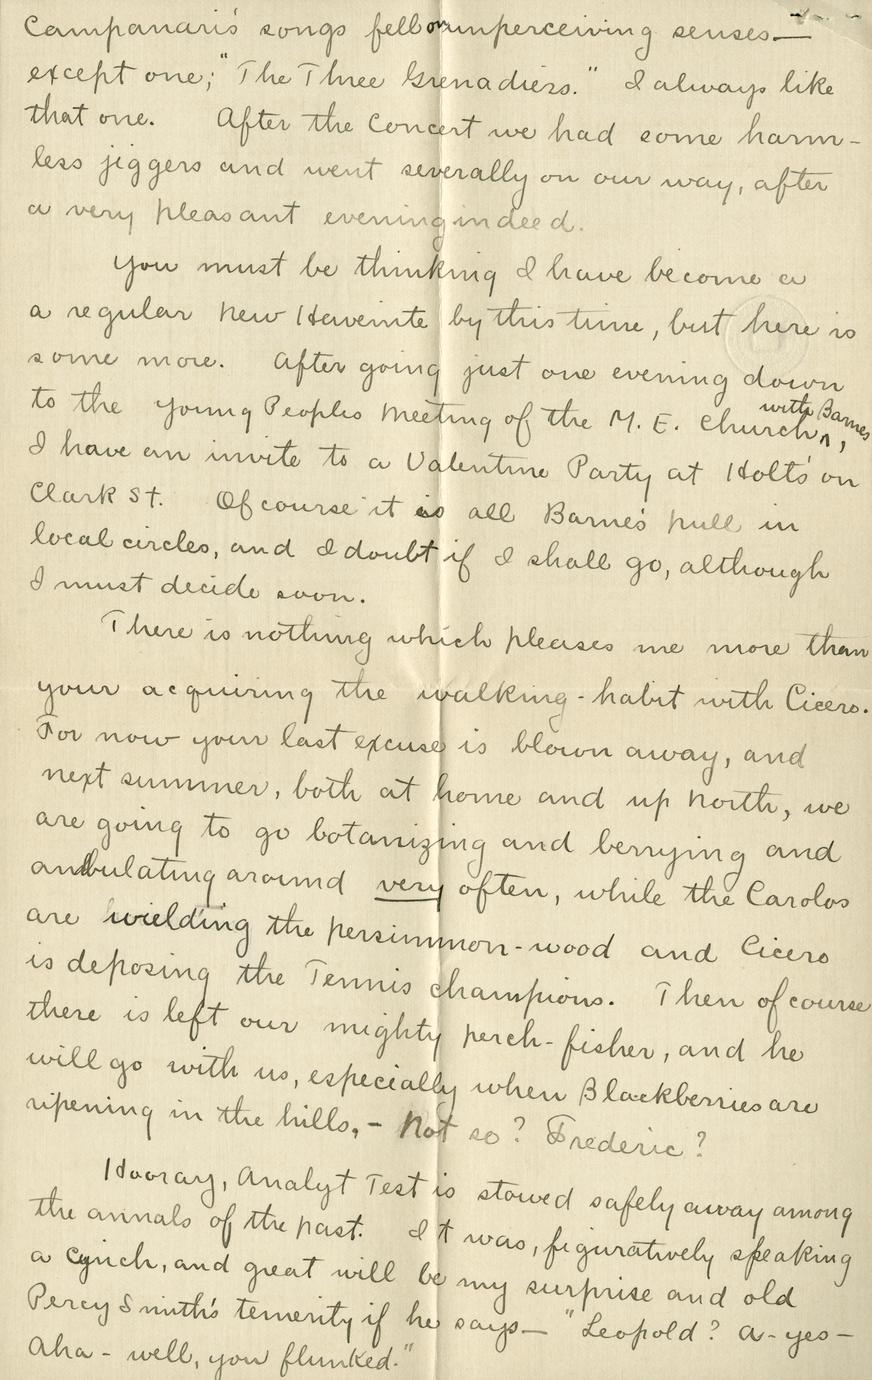 Campanari's songs fell on unperceiving senses—
except one; "The Three Grenadiers." I always like
that one. After the Concert we had some harm-
less jiggers and went severally on our way, after
a very pleasant evening indeed.
You must be thinking I have become a
a regular New Haveinte by this time, but here is
some more. After going just one evening down
to the Young Peoples Meeting of the M. E. Church with Barnes,
I have an invite to a Valentine Party at Holts' on
Clark St. Of course it is all Barne's pull in
local circles, and I doubt if I shall go, although
I must decide soon.
There is nothing which pleases me more than
your acquiring the walking-habit with Cicero.
For now your last excuse is blown away, and
next summer, both at home and up North, we
are going to go botanizing and berrying and
ambulating around very often, while the Carolos
are wielding the persimmon-wood and Cicero
is deposing the Tennis champions. Then of course
there is left our mighty perch-fisher, and he
will go with us, especially when Blackberries are
ripening in the hills, - Not so? Frederic?
Hooray, Analyt Test is stowed safely away among
the annals of the past. It was, figuratively speaking
a cynch, and great will be my surprise and old
Percy Smith's temerity if he says— "Leopold? A-yes—
Aha - well, you flunked."